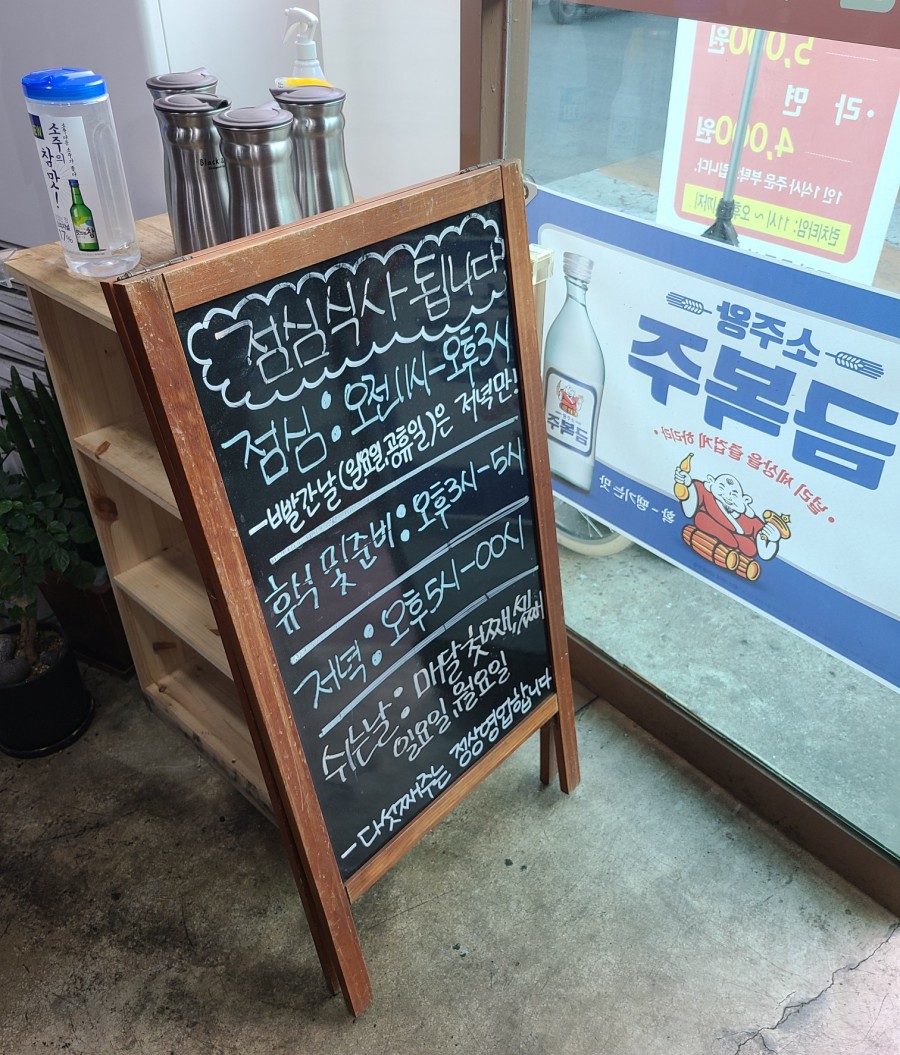 점심식사 됩니다
점심 : 오전11시-오후3시
-빨간날(일요일,공휴일)은 저녁만!
휴식 및 준비 : 오후3시-5시
저녁 : 오후5시-00시
쉬는날 : 매달 첫째,셋째
일요일,월요일
-다섯째주는 정상영업합니다
소주의
참맛!
Black
5,000원
·라 면
4,000원
1인 1식사 주문 부탁드립니다.
런치타임: 11시 ~ 오후3시까지
소주왕
금복주
널리 세상을 즐겁게 하리라
금복주